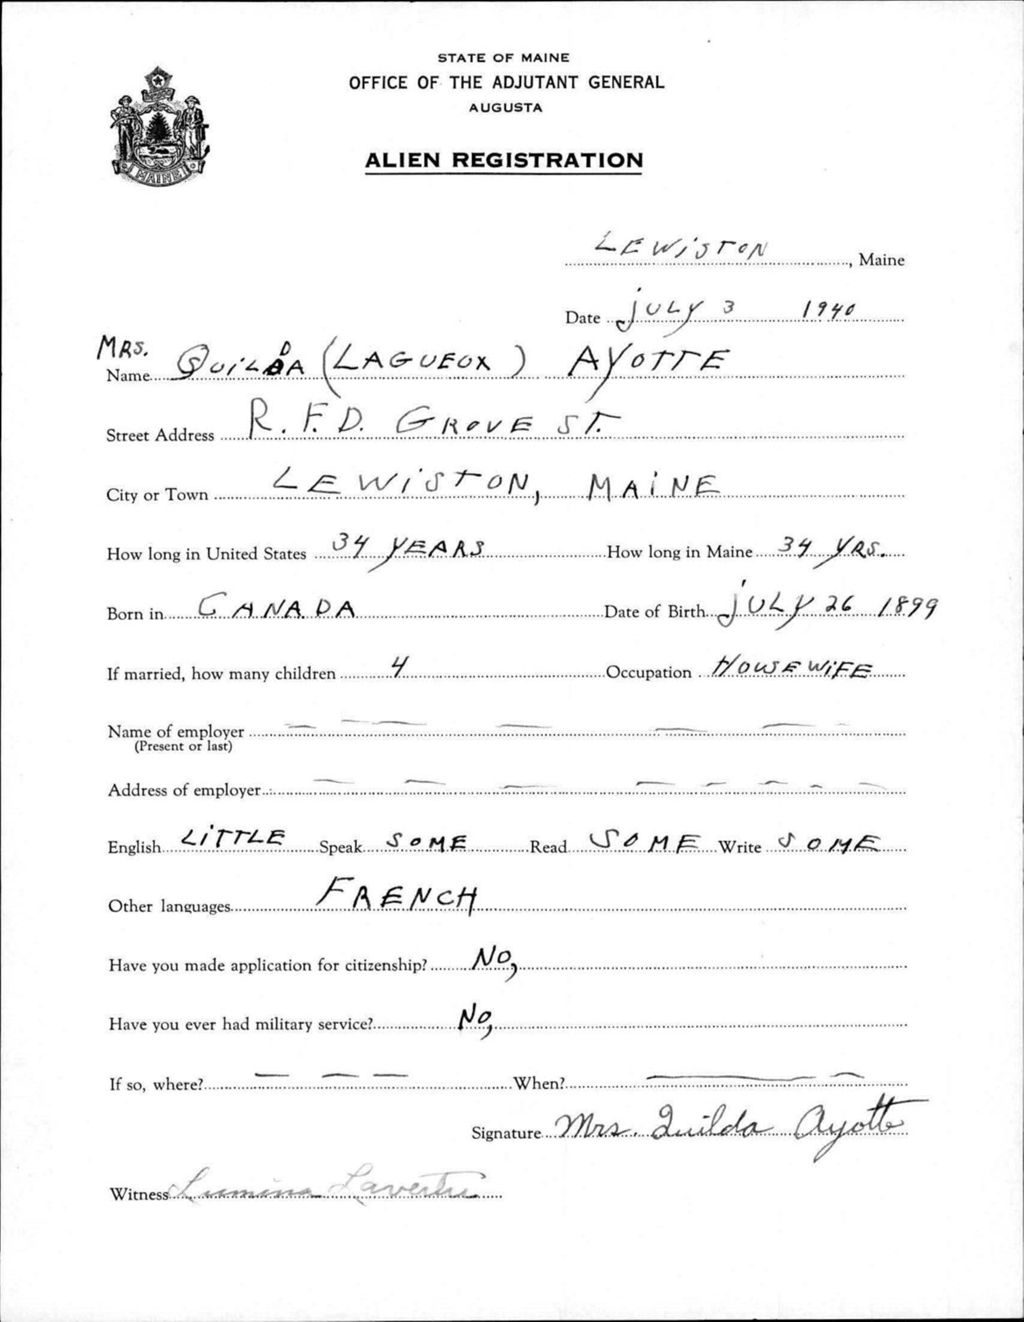 STATE OF MAINE
OFFICE OF THE ADJUTANT GENERAL
AUGUSTA
ALIEN REGISTRATION
MAINE
LEWISTON, Maine
Date JULY 3 1940
MRS.
Name QUILDA (LAGUEUX) AYOTTE
Street Address R.F.D. GROVE ST.
City or Town LEWISTON, MAINE
How long in United States 34 YEARS How long in Maine 34 YRS.
Born in CANADA Date of Birth JULY 26 1899
If married, how many children 4 Occupation HOUSEWIFE
Name of employer — — — — —
(Present or last)
Address of employer — — — — — — — —
English LITTLE Speak SOME Read SOME Write SOME
Other languages FRENCH
Have you made application for citizenship? NO,
Have you ever had military service? NO,
If so, where? — — — When? — —
Signature Mrs. Quilda Ayotte
Witness Lumina Lavertu